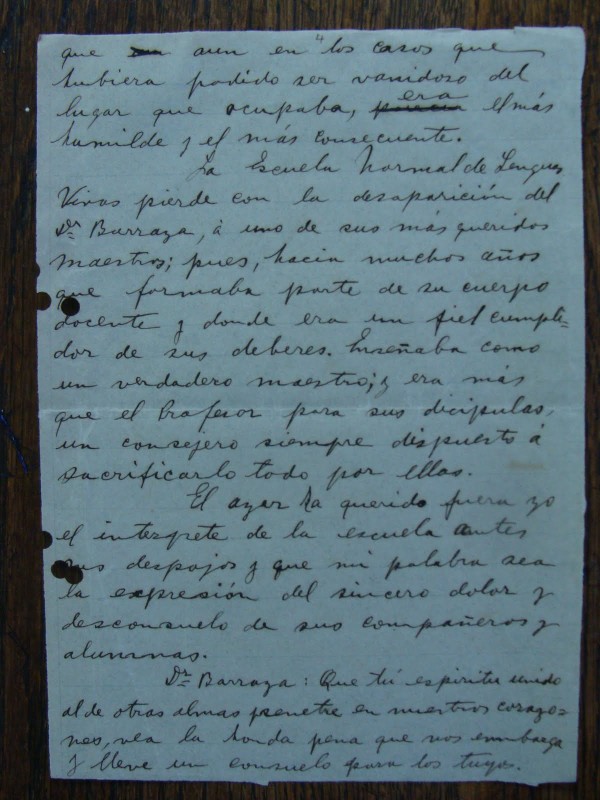 4
que aun en los casos que
hubiera podido ser vanidoso del
lugar que ocupaba, era el más
humilde y el más consecuente.
La Escuela Normal de Lenguas
Vivas pierde con la desaparición del
Dr. Barraza, á uno de sus más queridos
maestros; pues, hacia muchos años
que formaba parte de su cuerpo
docente y donde era un fiel cumpli-
dor de sus deberes. Enseñaba como
un verdadero maestro; y era más
que el Profesor para sus dicipulas,
un consejero siempre dispuesto á
sacrificarlo todo por ellas.
El azar ha querido fuera yo
el interprete de la escuela antes
sus despojos y que mi palabra sea
la expresión del sincero dolor y
desconsuelo de sus compañeros y
alumnas.
Dr. Barraza: Que tú espiritu unido
al de otras almas penetre en nuestros corazo-
nes, vea la honda pena que nos embarga
y lleve un consuelo para los tuyos.